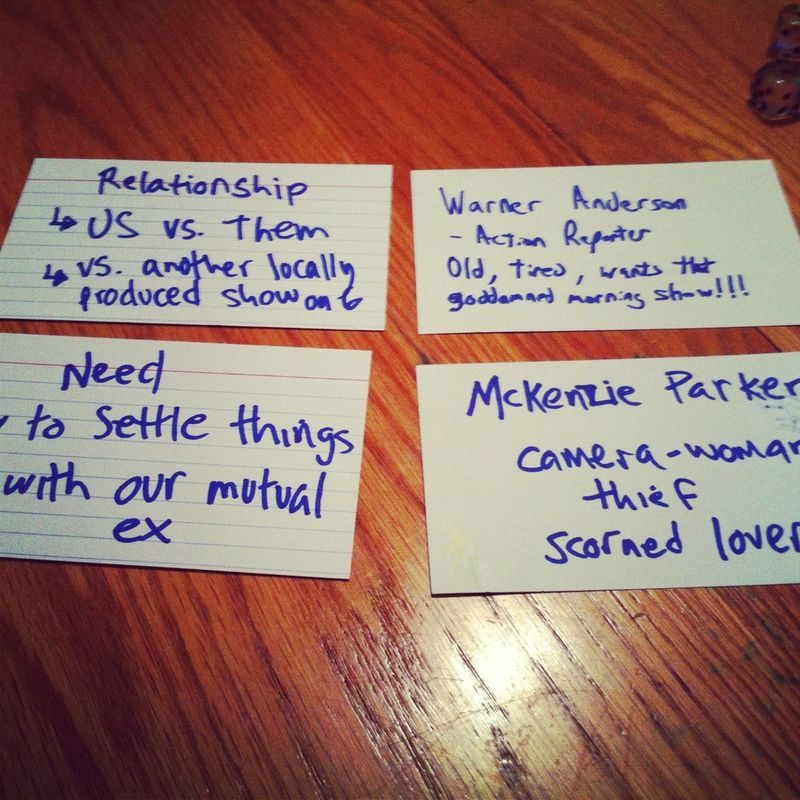 Relationship
↳ US vs. Them
↳ vs. another locally
produced show on 6
Warner Anderson
- Action Reporter
Old, tired, wants that
goddamned morning show!!!
Need
to settle things
with our mutual
ex
McKenzie Parker
camera-woman
thief
scorned lover